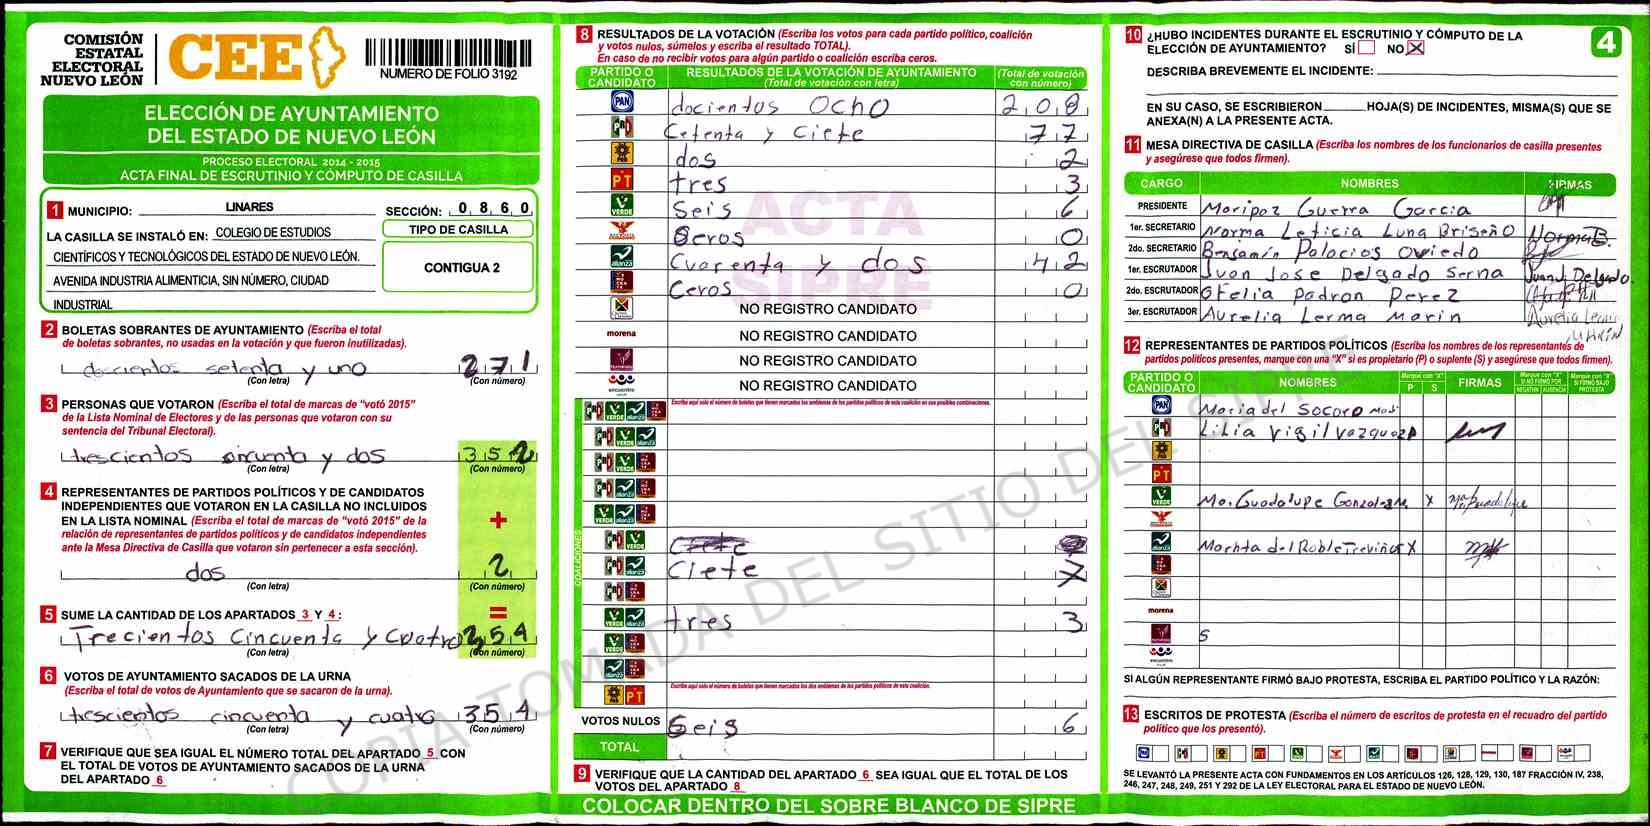 COMISIÓN
ESTATAL
ELECTORAL
NUEVO LEÓN
CEE
NUMERO DE FOLIO 3192
ELECCIÓN DE AYUNTAMIENTO
DEL ESTADO DE NUEVO LEÓN
PROCESO ELECTORAL 2014 - 2015
ACTA FINAL DE ESCRUTINIO Y CÓMPUTO DE CASILLA
1 MUNICIPIO: LINARES SECCIÓN: 0 8 6 0
LA CASILLA SE INSTALÓ EN: COLEGIO DE ESTUDIOS
CIENTÍFICOS Y TECNOLÓGICOS DEL ESTADO DE NUEVO LEÓN.
AVENIDA INDUSTRIA ALIMENTICIA, SIN NÚMERO, CIUDAD
INDUSTRIAL
TIPO DE CASILLA
CONTIGUA 2
2 BOLETAS SOBRANTES DE AYUNTAMIENTO (Escriba el total
de boletas sobrantes, no usadas en la votación y que fueron inutilizadas).
doscientos setenta y uno 271
(Con letra) (Con número)
3 PERSONAS QUE VOTARON (Escriba el total de marcas de "votó 2015"
de la Lista Nominal de Electores y de las personas que votaron con su
sentencia del Tribunal Electoral).
trescientos cincuenta y dos 352
(Con letra) (Con número)
4 REPRESENTANTES DE PARTIDOS POLÍTICOS Y DE CANDIDATOS
INDEPENDIENTES QUE VOTARON EN LA CASILLA NO INCLUIDOS
EN LA LISTA NOMINAL (Escriba el total de marcas de "votó 2015" de la
relación de representantes de partidos políticos y de candidatos independientes
ante la Mesa Directiva de Casilla que votaron sin pertenecer a esta sección).
+
dos 2
(Con letra) (Con número)
=
5 SUME LA CANTIDAD DE LOS APARTADOS 3 Y 4:
Trecientos Cincuenta y Cuatro 354
(Con letra) (Con número)
6 VOTOS DE AYUNTAMIENTO SACADOS DE LA URNA
(Escriba el total de votos de Ayuntamiento que se sacaron de la urna).
trescientos cincuenta y cuatro 354
(Con letra) (Con número)
7 VERIFIQUE QUE SEA IGUAL EL NÚMERO TOTAL DEL APARTADO 5 CON
EL TOTAL DE VOTOS DE AYUNTAMIENTO SACADOS DE LA URNA
DEL APARTADO 6
8 RESULTADOS DE LA VOTACIÓN (Escriba los votos para cada partido político, coalición
y votos nulos, súmelos y escriba el resultado TOTAL).
En caso de no recibir votos para algún partido o coalición escriba ceros.
PARTIDO O CANDIDATO RESULTADOS DE LA VOTACIÓN DE AYUNTAMIENTO (Total de votación con letra) (Total de votación con número)
PAN docientos OchO 208
PRD Cetenta y Ciete 77
dos 2
PT tres 3
VERDE Seis 6
Ceros 0
alianza Cuarenta y dos 42
Ceros 0
ACTA
SIPRE
NO REGISTRO CANDIDATO
morena NO REGISTRO CANDIDATO
NO REGISTRO CANDIDATO
encuentro NO REGISTRO CANDIDATO
COALICIONES
Escriba aquí solo el número de boletas que tienen marcados los emblemas de los partidos políticos de esta coalición en sus posibles combinaciones.
Ciete 7
tres 3
Escriba aquí solo el número de boletas que tienen marcados los dos emblemas de los partidos políticos de esta coalición.
VOTOS NULOS Seis 6
TOTAL
9 VERIFIQUE QUE LA CANTIDAD DEL APARTADO 6 SEA IGUAL QUE EL TOTAL DE LOS
VOTOS DEL APARTADO 8
COLOCAR DENTRO DEL SOBRE BLANCO DE SIPRE
10 ¿HUBO INCIDENTES DURANTE EL ESCRUTINIO Y CÓMPUTO DE LA
ELECCIÓN DE AYUNTAMIENTO? SÍ NO X
4
DESCRIBA BREVEMENTE EL INCIDENTE:
EN SU CASO, SE ESCRIBIERON HOJA(S) DE INCIDENTES, MISMA(S) QUE SE
ANEXA(N) A LA PRESENTE ACTA.
11 MESA DIRECTIVA DE CASILLA (Escriba los nombres de los funcionarios de casilla presentes
y asegúrese que todos firmen).
CARGO NOMBRES FIRMAS
PRESIDENTE Maripaz Guerra Garcia
1er. SECRETARIO Norma Leticia Luna Briseño Norma B.
2do. SECRETARIO Benjamín Palacios Oviedo
1er. ESCRUTADOR Juan Jose Delgado Serna Juan J. Delgado.
2do. ESCRUTADOR Ofelia Padron Perez
3er. ESCRUTADOR Aurelia Lerma Marin Aurelia Lerma MARIN
12 REPRESENTANTES DE PARTIDOS POLÍTICOS (Escriba los nombres de los representantes de
partidos políticos presentes, marque con una "X" si es propietario (P) o suplente (S) y asegúrese que todos firmen).
PARTIDO O CANDIDATO NOMBRES Marque con "X" P S FIRMAS Marque con "X" SI NO FIRMÓ POR NEGATIVA AUSENCIA Marque con "X" SI FIRMÓ BAJO PROTESTA
PAN Maria del Socoro
Lilia Vigil Vazquez
PT
VERDE Ma. Guadalupe Gonzalez M. X Ma. Guadalupe
alianza Martha del Roble Treviño X
morena
S
encuentro
SI ALGÚN REPRESENTANTE FIRMÓ BAJO PROTESTA, ESCRIBA EL PARTIDO POLÍTICO Y LA RAZÓN:
13 ESCRITOS DE PROTESTA (Escriba el número de escritos de protesta en el recuadro del partido
político que los presentó).
SE LEVANTÓ LA PRESENTE ACTA CON FUNDAMENTOS EN LOS ARTÍCULOS 126, 128, 129, 130, 187 FRACCIÓN IV, 238,
246, 247, 248, 249, 251 Y 292 DE LA LEY ELECTORAL PARA EL ESTADO DE NUEVO LEÓN.
COPIA TOMADA DEL SITIO DEL SIPRE